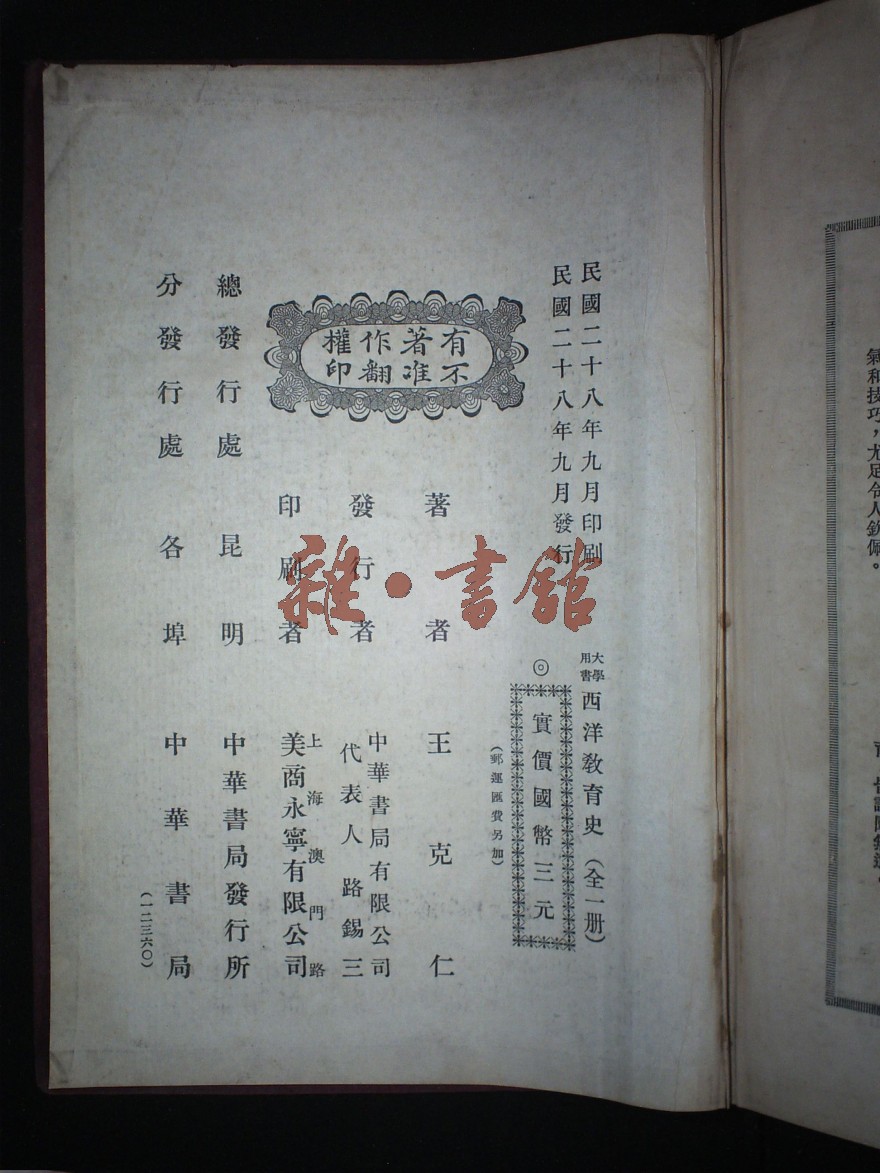 民國二十八年九月印刷
民國二十八年九月發行
大學
用書
西洋教育史(全一册)
◎
實價國幣三元
(郵運匯費另加)
有著作權
不准翻印
著者 王克仁
發行者 中華書局有限公司
代表人路錫三
印刷者 上海澳門路
美商永寧有限公司
總發行處 昆明 中華書局發行所
分發行處 各埠 中華書局
(一二三六〇)
雜·書館
氣和技巧，尤足令人欽佩。